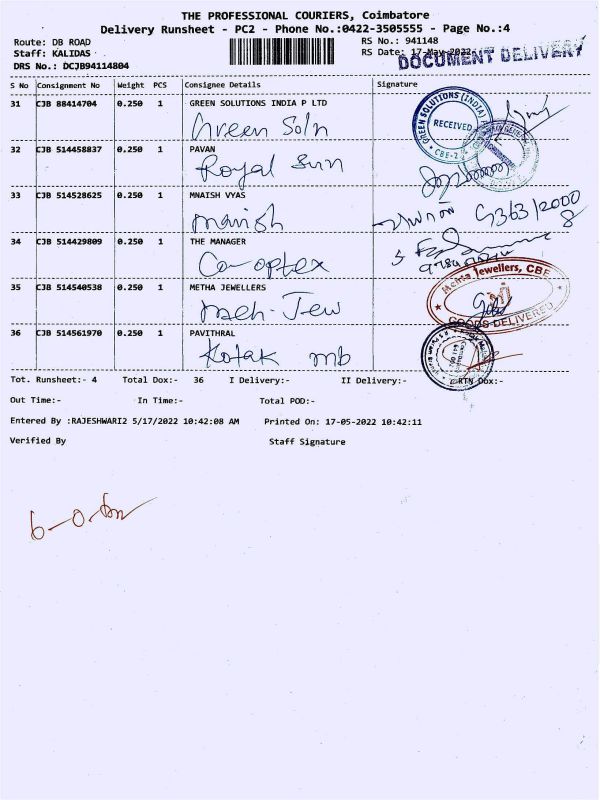 THE PROFESSIONAL COURIERS, Coimbatore
Delivery Runsheet - PC2 - Phone No.:0422-3505555 - Page No.:4
Route: DB ROAD RS No.: 941148
Staff: KALIDAS RS Date: 17-May-2022
DOCUMENT DELIVERY
DRS No.: DCJB94114804
S No Consignment No Weight PCS Consignee Details Signature
31 CJB 88414704 0.250 1 GREEN SOLUTIONS INDIA P LTD
Green Soln
GREEN SOLUTIONS (INDIA) RECEIVED CBE-2
32 CJB 514458837 0.250 1 PAVAN
Royal Sun
33 CJB 514528625 0.250 1 MNAISH VYAS
manish
9363/2000
8
34 CJB 514429809 0.250 1 THE MANAGER
Co-optex
35 CJB 514540538 0.250 1 METHA JEWELLERS
meh-Jew
Mehta Jewellers, CBE
GOODS DELIVERED
36 CJB 514561970 0.250 1 PAVITHRAL
Kotak mb
Tot. Runsheet:- 4 Total Dox:- 36 I Delivery:- II Delivery:- RTN Dox:-
Out Time:- In Time:- Total POD:-
Entered By :RAJESHWARI2 5/17/2022 10:42:08 AM Printed On: 17-05-2022 10:42:11
Verified By Staff Signature